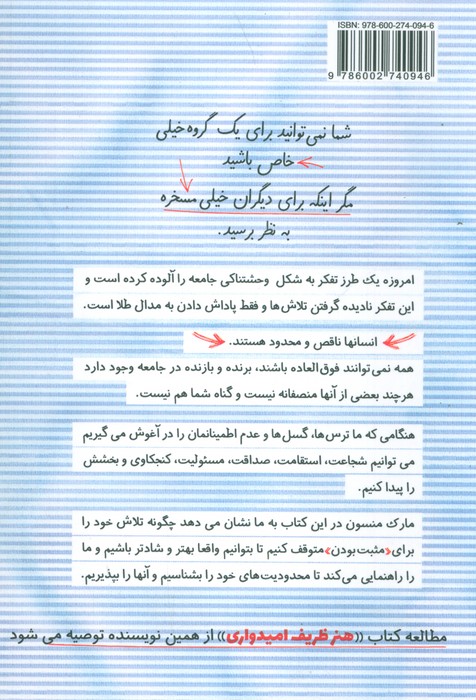 ISBN: 978-600-274-094-6
9 786002 740946
شما نمی‌توانید برای یک گروه خیلی
خاص باشید
مگر اینکه برای دیگران خیلی مسخره
به نظر برسید.
امروزه یک طرز تفکر به شکل وحشتناکی جامعه را آلوده کرده است و
این تفکر نادیده گرفتن تلاش‌ها و فقط پاداش دادن به مدال طلا است.
انسانها ناقص و محدود هستند.
همه نمی‌توانند فوق‌العاده باشند، برنده و بازنده در جامعه وجود دارد
هرچند بعضی از آنها منصفانه نیست و گناه شما هم نیست.
هنگامی که ما ترس‌ها، گسل‌ها و عدم اطمینانمان را در آغوش می گیریم
می توانیم شجاعت، استقامت، صداقت، مسئولیت، کنجکاوی و بخشش
را پیدا کنیم.
مارک منسون در این کتاب به ما نشان می دهد چگونه تلاش خود را
برای «مثبت‌بودن» متوقف کنیم تا بتوانیم واقعا بهتر و شادتر باشیم و ما
را راهنمایی می‌کند تا محدودیت‌های خود را بشناسیم و آنها را بپذیریم.
مطالعه کتاب ((هنر ظریف امیدواری)) از همین نویسنده توصیه می شود